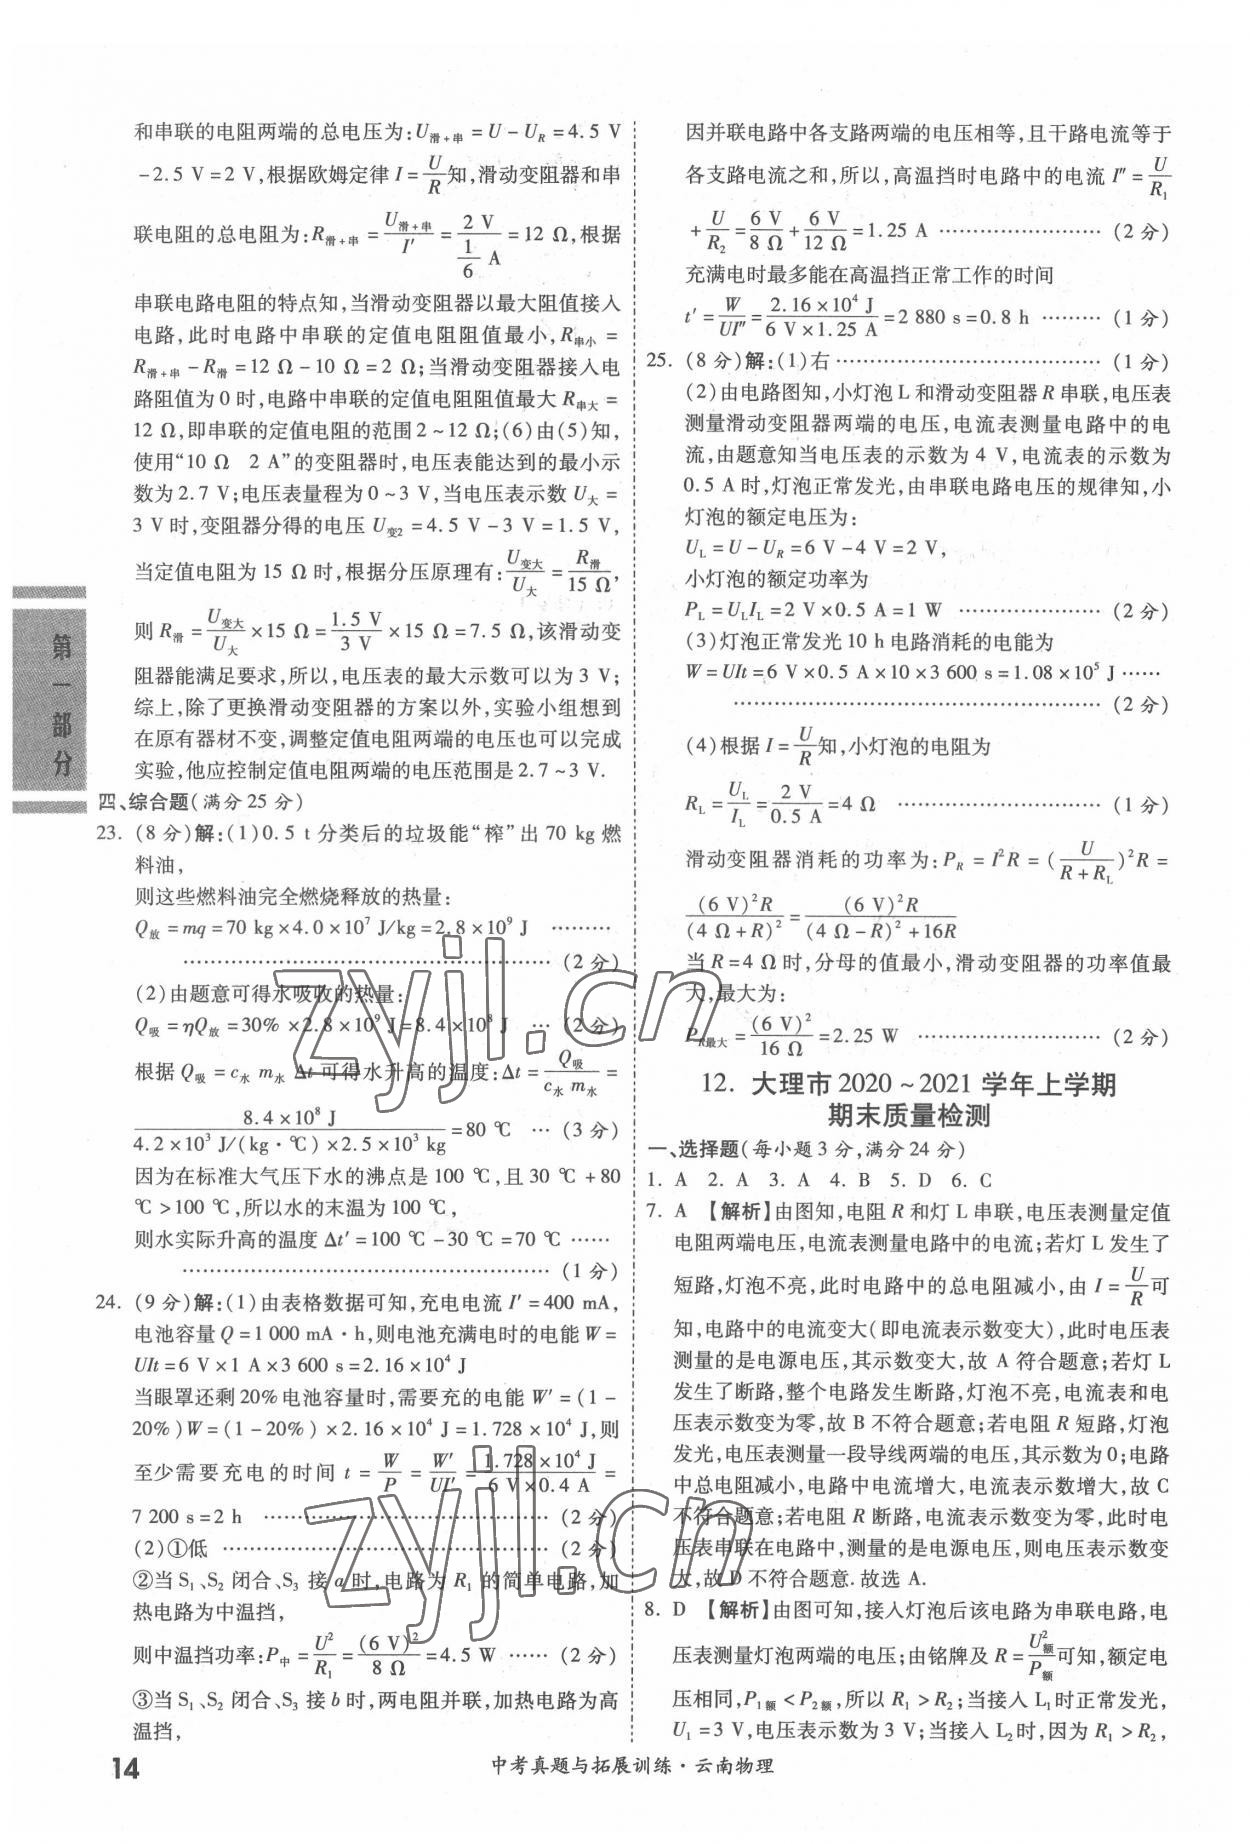 和串联的电阻两端的总电压为:U滑+串 = U - UR = 4.5 V
-2.5 V = 2 V,根据欧姆定律 I = U/R 知,滑动变阻器和串
联电阻的总电阻为:R滑+串 = U滑+串/I′ = 2 V/(1/6 A) = 12 Ω,根据
串联电路电阻的特点知,当滑动变阻器以最大阻值接入
电路,此时电路中串联的定值电阻阻值最小,R串小 =
R滑+串 - R滑 = 12 Ω - 10 Ω = 2 Ω;当滑动变阻器接入电
路阻值为 0 时,电路中串联的定值电阻阻值最大 R串大 =
12 Ω,即串联的定值电阻的范围 2 ~ 12 Ω;(6)由(5)知,
使用“10 Ω 2 A”的变阻器时,电压表能达到的最小示
数为 2.7 V;电压表量程为 0 ~ 3 V,当电压表示数 U大 =
3 V 时,变阻器分得的电压 U变2 = 4.5 V - 3 V = 1.5 V,
当定值电阻为 15 Ω 时,根据分压原理有:U变大/U大 = R滑/15 Ω,
则 R滑 = U变大/U大 × 15 Ω = 1.5 V/3 V × 15 Ω = 7.5 Ω,该滑动变
阻器能满足要求,所以,电压表的最大示数可以为 3 V;
综上,除了更换滑动变阻器的方案以外,实验小组想到
在原有器材不变,调整定值电阻两端的电压也可以完成
实验,他应控制定值电阻两端的电压范围是 2.7 ~ 3 V.
四、综合题(满分 25 分)
23. (8 分)解:(1)0.5 t 分类后的垃圾能“榨”出 70 kg 燃
料油,
则这些燃料油完全燃烧释放的热量:
Q放 = mq = 70 kg × 4.0 × 10⁷ J/kg = 2.8 × 10⁹ J ………
……………………………………………… (2 分)
(2)由题意可得水吸收的热量:
Q吸 = ηQ放 = 30% × 2.8 × 10⁹ J = 8.4 × 10⁸ J … (2 分)
根据 Q吸 = c水 m水 Δt 可得水升高的温度:Δt = Q吸/(c水 m水) =
8.4 × 10⁸ J/(4.2 × 10³ J/(kg·℃) × 2.5 × 10³ kg) = 80 ℃ … (3 分)
因为在标准大气压下水的沸点是 100 ℃,且 30 ℃ + 80
℃ > 100 ℃,所以水的末温为 100 ℃,
则水实际升高的温度 Δt′ = 100 ℃ - 30 ℃ = 70 ℃ ……
……………………………………………… (1 分)
24. (9 分)解:(1)由表格数据可知,充电电流 I′ = 400 mA,
电池容量 Q = 1 000 mA·h,则电池充满电时的电能 W =
UIt = 6 V × 1 A × 3 600 s = 2.16 × 10⁴ J
当眼罩还剩 20% 电池容量时,需要充的电能 W′ = (1 -
20%)W = (1 - 20%) × 2.16 × 10⁴ J = 1.728 × 10⁴ J,则
至少需要充电的时间 t = W/P = W′/UI′ = 1.728 × 10⁴ J/(6 V × 0.4 A) =
7 200 s = 2 h …………………………………… (2 分)
(2)①低 ………………………………………… (2 分)
②当 S₁、S₂ 闭合、S₃ 接 a 时,电路为 R₁ 的简单电路,加
热电路为中温挡,
则中温挡功率:P中 = U²/R₁ = (6 V)²/8 Ω = 4.5 W …… (2 分)
③当 S₁、S₂ 闭合、S₃ 接 b 时,两电阻并联,加热电路为高
温挡,
因并联电路中各支路两端的电压相等,且干路电流等于
各支路电流之和,所以,高温挡时电路中的电流 I″ = U/R₁
+ U/R₂ = 6 V/8 Ω + 6 V/12 Ω = 1.25 A …………………… (2 分)
充满电时最多能在高温挡正常工作的时间
t′ = W/UI″ = 2.16 × 10⁴ J/(6 V × 1.25 A) = 2 880 s = 0.8 h ……… (1 分)
25. (8 分)解:(1)右 ………………………………… (1 分)
(2)由电路图知,小灯泡 L 和滑动变阻器 R 串联,电压表
测量滑动变阻器两端的电压,电流表测量电路中的电
流,由题意知当电压表的示数为 4 V,电流表的示数为
0.5 A 时,灯泡正常发光,由串联电路电压的规律知,小
灯泡的额定电压为:
UL = U - UR = 6 V - 4 V = 2 V,
小灯泡的额定功率为
PL = ULIL = 2 V × 0.5 A = 1 W ………………… (2 分)
(3)灯泡正常发光 10 h 电路消耗的电能为
W = UIt = 6 V × 0.5 A × 10 × 3 600 s = 1.08 × 10⁵ J ……
……………………………………………… (2 分)
(4)根据 I = U/R 知,小灯泡的电阻为
RL = UL/IL = 2 V/0.5 A = 4 Ω ………………………… (1 分)
滑动变阻器消耗的功率为:PR = I²R = (U/(R + RL))²R =
(6 V)²R/(4 Ω + R)² = (6 V)²R/((4 Ω - R)² + 16R)
当 R = 4 Ω 时,分母的值最小,滑动变阻器的功率值最
大,最大为:
PR最大 = (6 V)²/16 Ω = 2.25 W ……………………… (2 分)
12. 大理市 2020 ~ 2021 学年上学期
期末质量检测
一、选择题(每小题 3 分,满分 24 分)
1. A 2. A 3. A 4. B 5. D 6. C
7. A 【解析】由图知,电阻 R 和灯 L 串联,电压表测量定值
电阻两端电压,电流表测量电路中的电流;若灯 L 发生了
短路,灯泡不亮,此时电路中的总电阻减小,由 I = U/R 可
知,电路中的电流变大(即电流表示数变大),此时电压表
测量的是电源电压,其示数变大,故 A 符合题意;若灯 L
发生了断路,整个电路发生断路,灯泡不亮,电流表和电
压表示数变为零,故 B 不符合题意;若电阻 R 短路,灯泡
发光,电压表测量一段导线两端的电压,其示数为 0;电路
中总电阻减小,电路中电流增大,电流表示数增大,故 C
不符合题意;若电阻 R 断路,电流表示数变为零,此时电
压表串联在电路中,测量的是电源电压,则电压表示数变
大,故 D 不符合题意. 故选 A.
8. D 【解析】由图可知,接入灯泡后该电路为串联电路,电
压表测量灯泡两端的电压;由铭牌及 R = U额²/P额 可知,额定电
压相同,P1额 < P2额,所以 R₁ > R₂;当接入 L₁ 时正常发光,
U₁ = 3 V,电压表示数为 3 V;当接入 L₂ 时,因为 R₁ > R₂,
第一部分
14
中考真题与拓展训练·云南物理
zyjl.cn
zyjl.cn